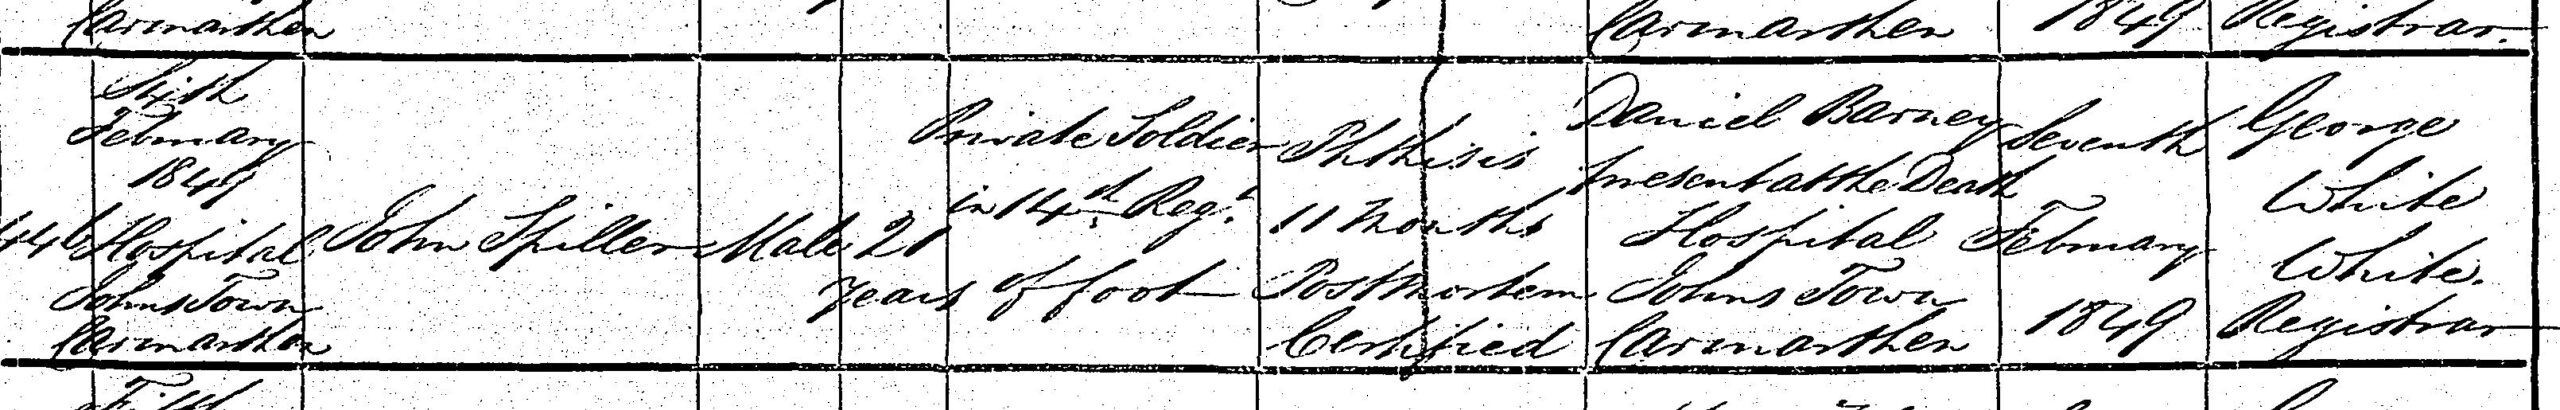 Carmarthen
Carmarthen
1849
Registrar.
446
Sixth
February
1849
Hospital
Johns Town
Carmarthen
John Spiller
Male
21
years
Private Soldier
in 14th Regt.
of foot
Phthisis
11 Months
Postmortem
Certified
Daniel Barney
Present at the Death
Hospital
Johns Town
Carmarthen
Seventh
February
1849
George
White
White.
Registrar